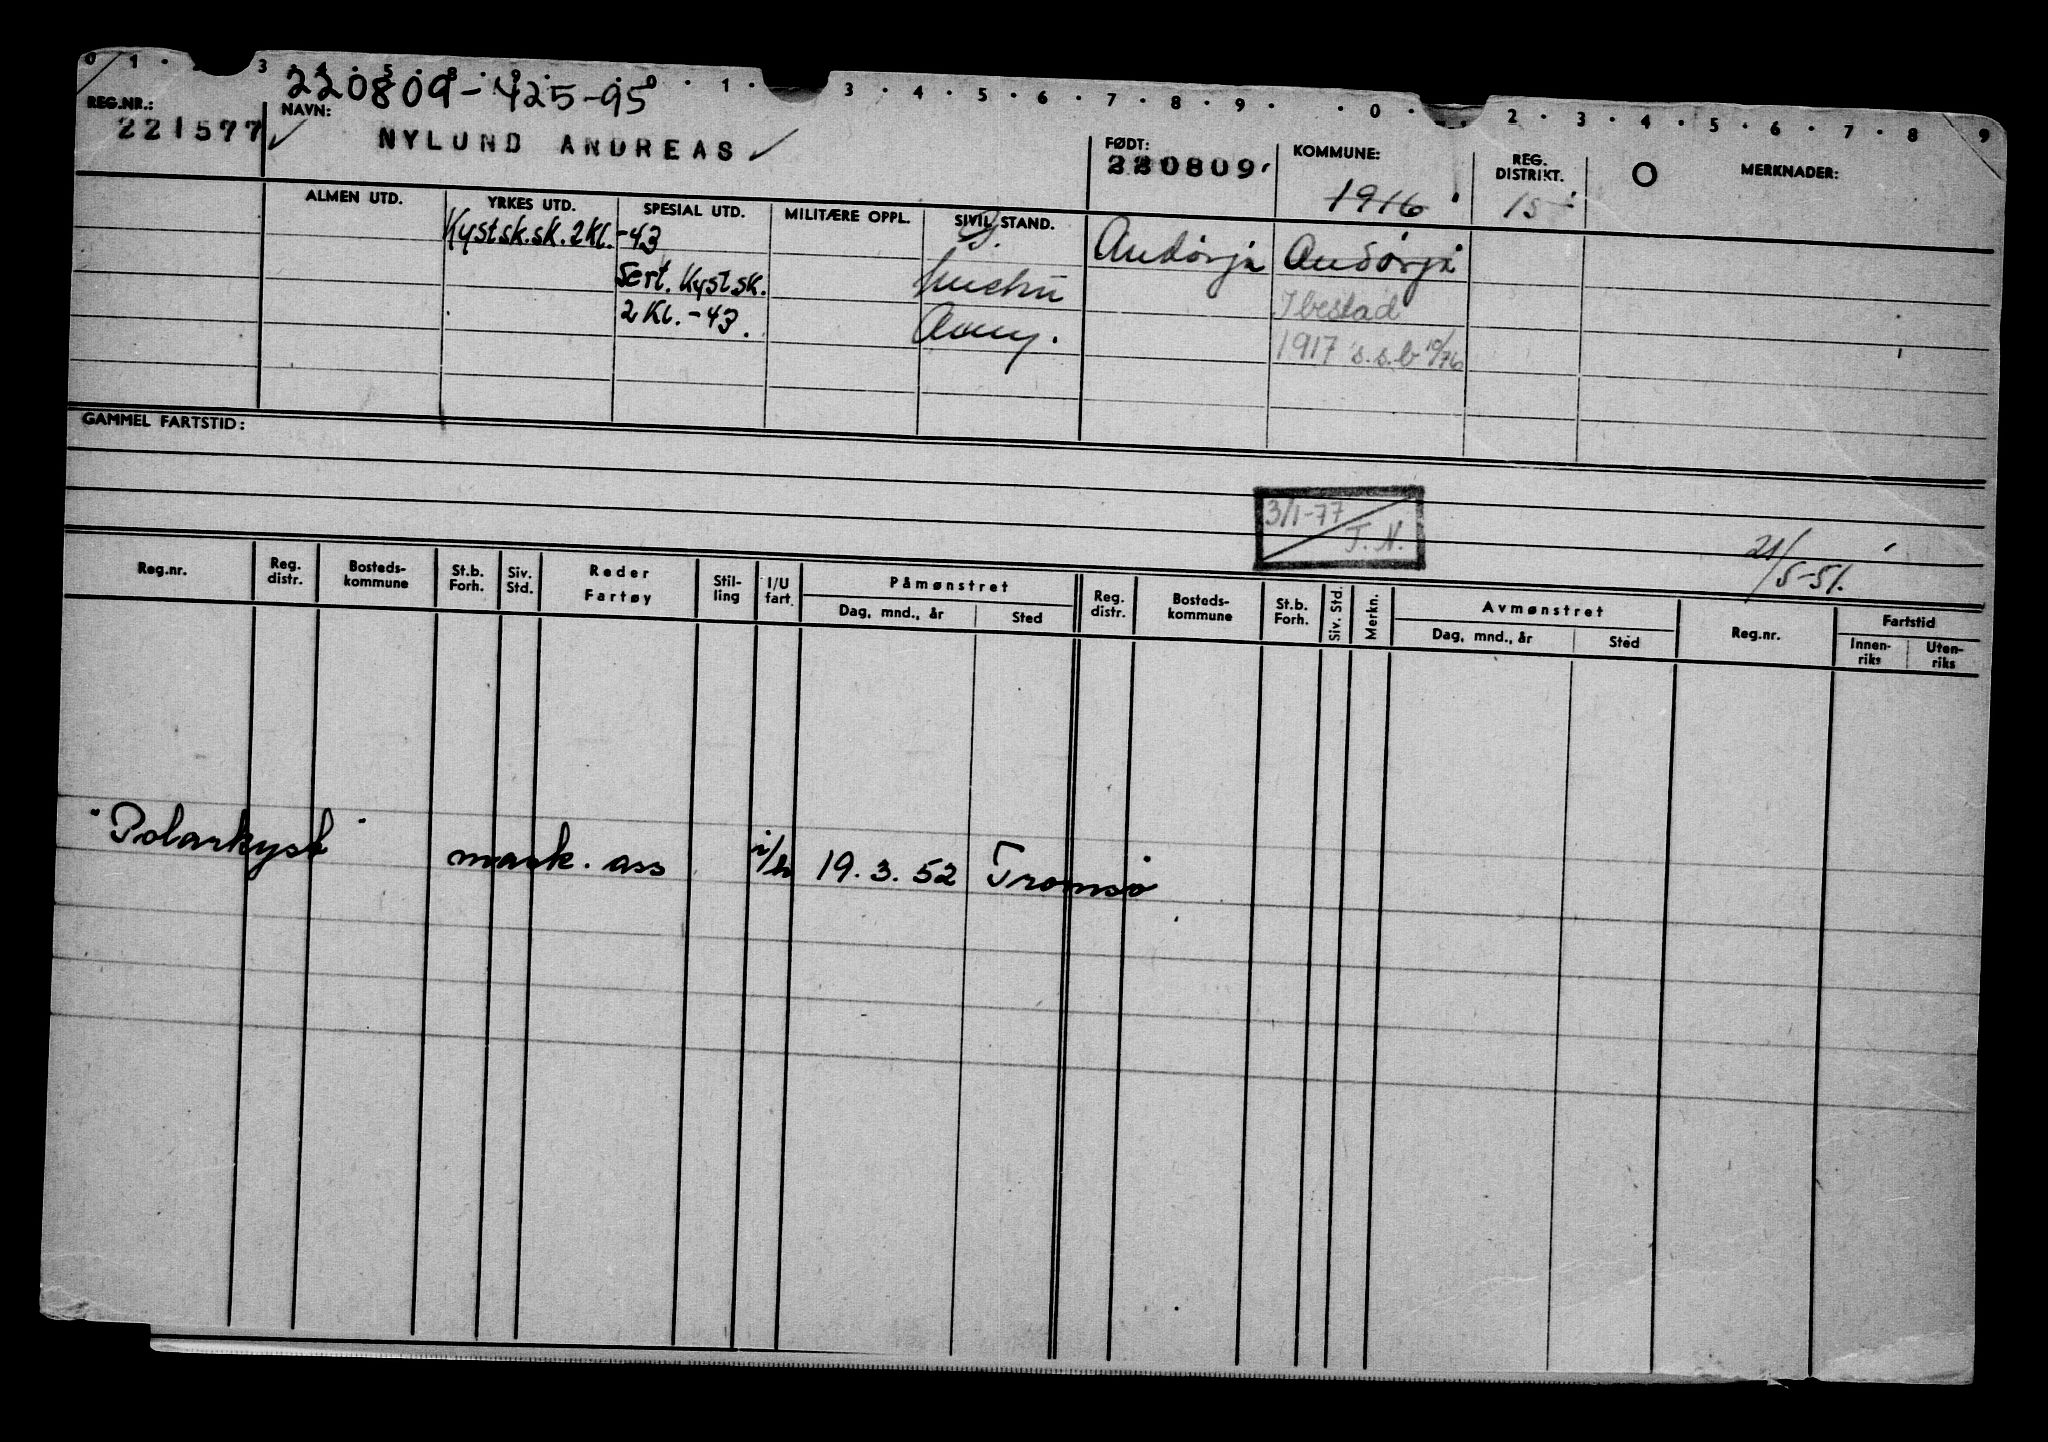 0 1 · 3 · 4 · 5 · 8 · 9 · 0 · 1 · 3 · 4 · 5 · 6 · 7 · 8 · 9 · 0 · 2 · 3 · 4 · 5 · 6 · 7 · 8 9
220809-425-95
REG.NR.: NAVN: FØDT: KOMMUNE: REG. DISTRIKT. O MERKNADER:
221577 ✓ NYLUND ANDREAS ✓ 220809 1916 15
ALMEN UTD. YRKES UTD. SPESIAL UTD. MILITÆRE OPPL. SIVIL STAND.
Kystsk.sk. 2Kl. -43 Andørja Andørja
Sert. Kystsk. Ibestad
2 Kl. -43. 1917 s.s.b 10/76
GAMMEL FARTSTID:
3/1-77
T. N.
21/5-51.
Reg.nr. Reg. distr. Bosteds-kommune St.b. Forh. Siv. Std. Reder Fartøy Stil-ling I/U fart. Påmønstret Reg. distr. Bosteds-kommune St.b. Forh. Siv. Std. Merkn. Avmønstret Reg.nr. Fartstid
Dag, mnd., år Sted Dag, mnd., år Sted Innen-riks Uten-riks
"Polarkyst" mask. ass 19.3.52 Tromsø